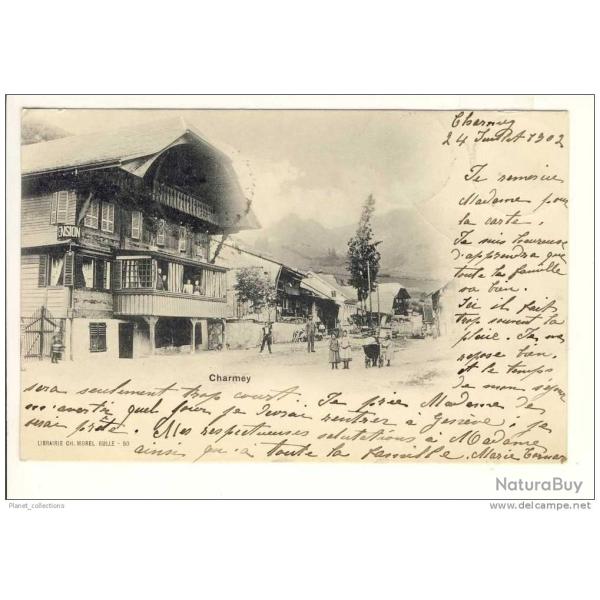 Charmey
24 Juillet 1902
Je remercie
Madame pour
la carte.
Je suis heureuse
d'apprendre que
toute la famille
va bien.
Ici il fait
trop souvent la
pluie. Je me
repose bien.
Et le temps
de mon séjour
PENSION
Charmey
sera seulement trop court. Je prie Madame de
m'avertir quel jour je devrai rentrer à Genève, je
serai prête. Mes respectueuses salutations à Madame
ainsi qu'à toute la famille. Marie
LIBRAIRIE CH. MOREL BULLE - 50
NaturaBuy
Planet_collections
www.delcampe.net